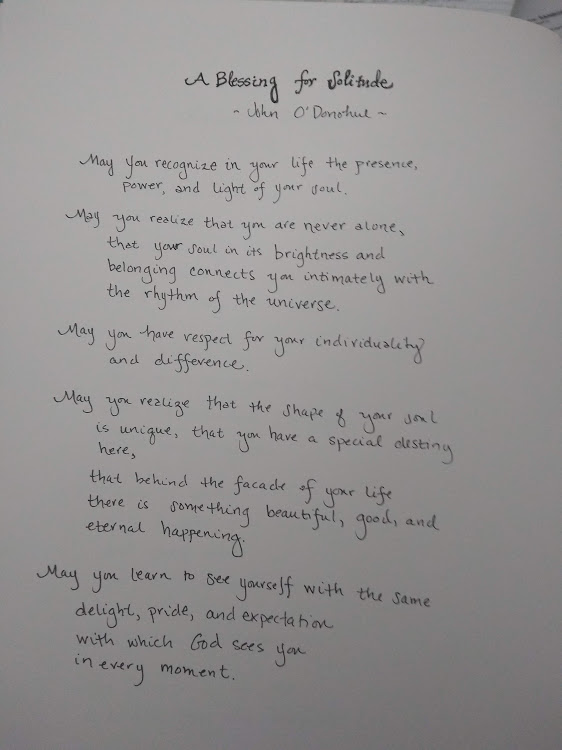 A Blessing for Solitude
~ John O'Donohue ~
May you recognize in your life the presence,
power, and light of your soul.
May you realize that you are never alone,
that your soul in its brightness and
belonging connects you intimately with
the rhythm of the universe.
May you have respect for your individuality
and difference.
May you realize that the shape of your soul
is unique, that you have a special destiny
here,
that behind the facade of your life
there is something beautiful, good, and
eternal happening.
May you learn to see yourself with the same
delight, pride, and expectation
with which God sees you
in every moment.